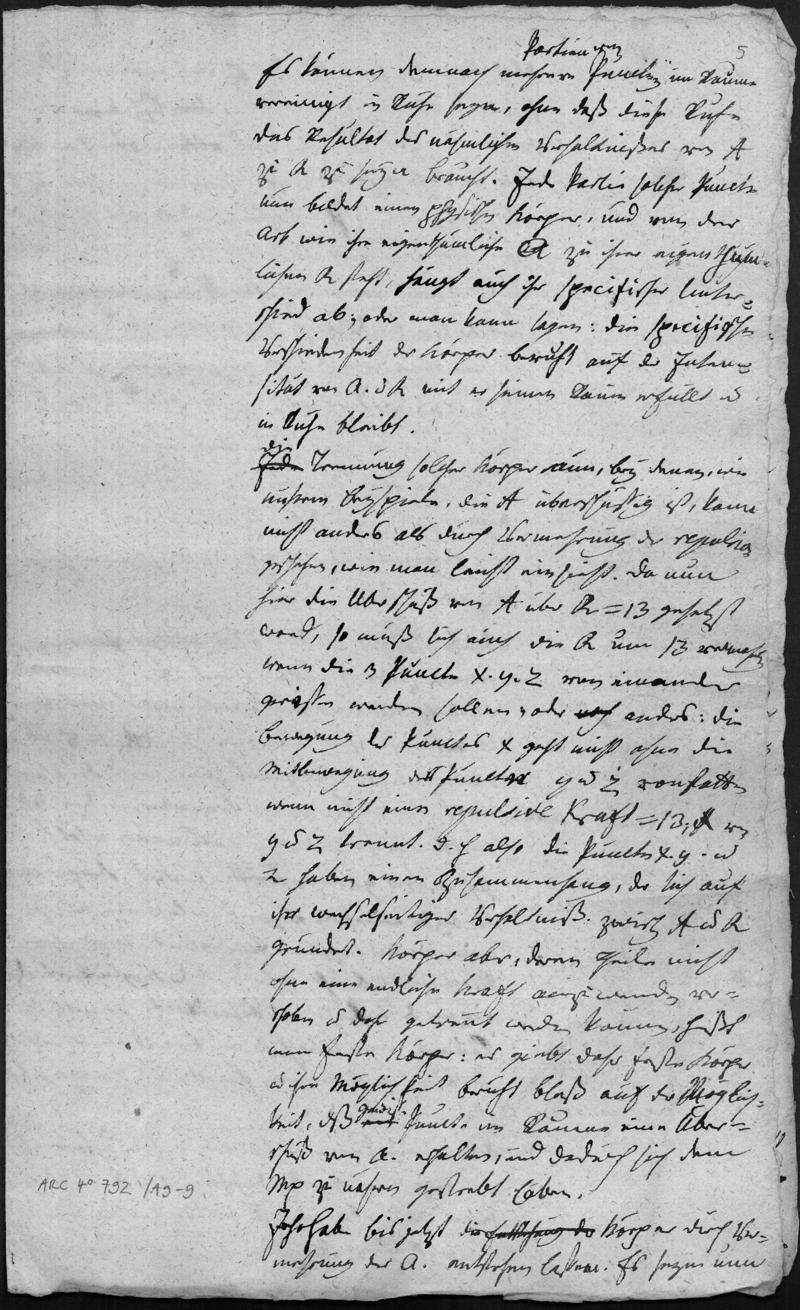 5
Partien von
Es können demnach mehrere Puncte im Raume
vereinigt in Ruhe seyn, ohne daß diese Ruhe
das Resultat des nähmlichen Verhältnißes von A
zu R zu seyn braucht. Jede Partie solcher Puncte
nun bildet einen physischen Körper, und von der
Art wie ihre eigenthümliche A zu ihrer eigenthüm-
lichen R steht, hängt auch ihr specifischer Unter-
schied ab; oder man kann sagen: die specifische
Verschiedenheit der Körper beruht auf der Inten-
sität von A. u R mit er seinen Raum erfüllt u
in Ruhe bleibt.
die
Jede Trennung solcher Körper nun, bey denen, wie
unserm Beyspiele, die A überschüssig ist, kann
nicht anders als durch Vermehrung der repulsion
geschehen, wie man leicht einsieht. Da nun
hier die Überschuß von A über R = 13 gesetzt
ward, so muß sich auch die R um 13 vermehren
wenn die 3 Puncte x. y. z von einander
gerissen werden sollen; oder anders: die
Bewegung des Punctes x geht nicht ohne die
Mitbewegung der Puncte y u z von statten
wenn nicht eine repulsive Kraft = 13, x von
y u z trennt. D. h also die Puncte x. y. u
z haben einen Zusammenhang, der sich auf
ihr wechselseitiges Verhältniß zwisch A u R
gründet. Körper aber, deren Theile nicht
ohne eine endliche Kraft anzuwenden ver-
schoben u daher getrennt werden können, heißt
man feste Körper: es giebt daher feste Körper
u ihre Möglichkeit beruht bloß auf der Möglich-
keit, daß Puncte im Raume einen Über-
schuß von A. erhalten, und dadurch sich dem
Mp zu nähern gestrebt haben.
Ich habe bis jetzt die Entstehung der Körper durch Ver-
mehrung der A. entstehen lassen. Es seyen nun
ARC 4° 792 /A9-9